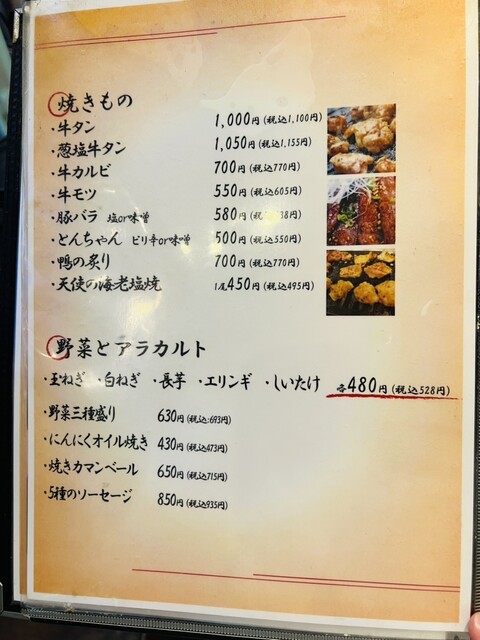 焼きもの
・牛タン 1,000円(税込1,100円)
・葱塩牛タン 1,050円(税込1,155円)
・牛カルビ 700円(税込770円)
・牛モツ 550円(税込605円)
・豚バラ 塩or味噌 580円
・とんちゃん ピリ辛or味噌 500円(税込550円)
・鴨の炙り 700円(税込770円)
・天使の海老塩焼 1尾450円(税込495円)
野菜とアラカルト
・玉ねぎ ・白ねぎ ・長芋 ・エリンギ ・しいたけ 各480円(税込528円)
・野菜三種盛り 630円(税込:693円)
・にんにくオイル焼き 430円(税込473円)
・焼きカマンベール 650円(税込715円)
・5種のソーセージ 850円(税込935円)